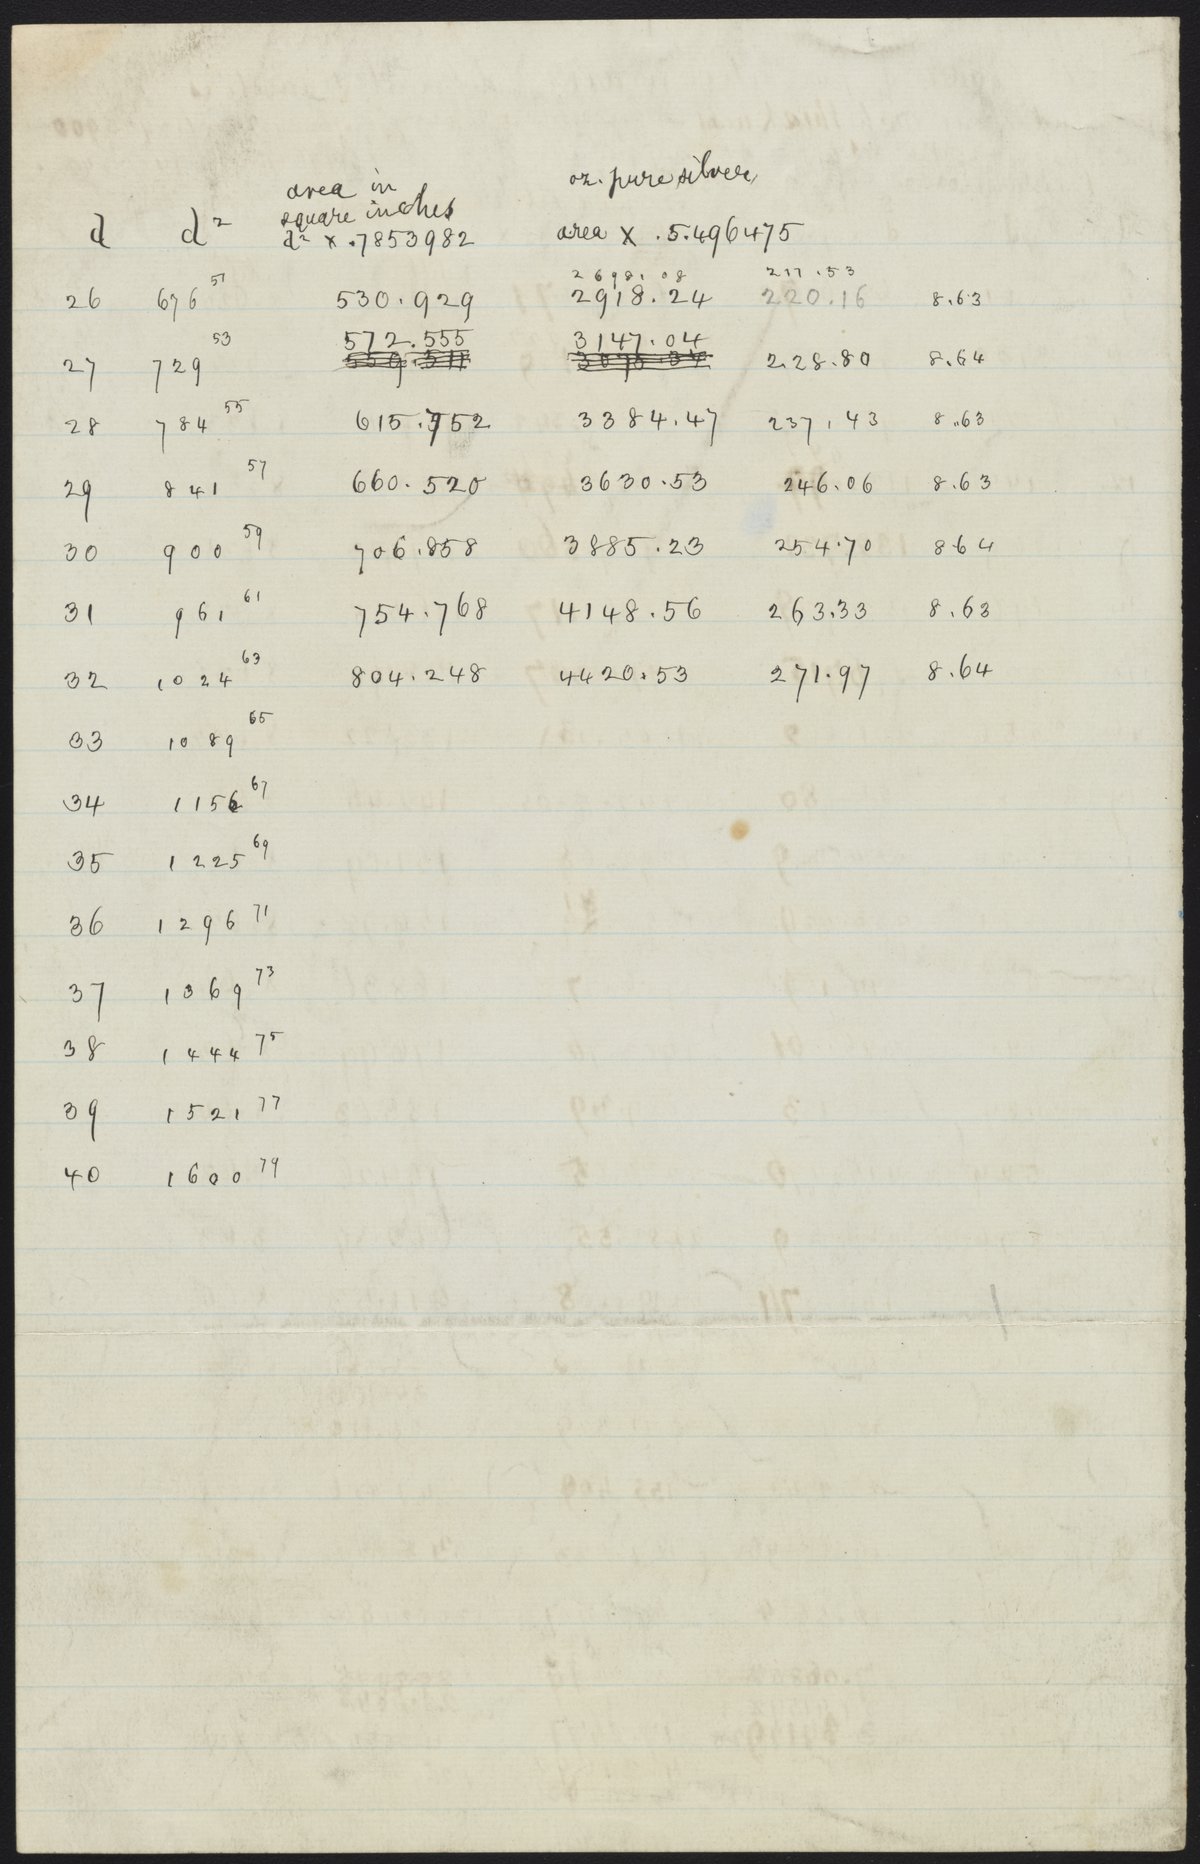 area in
oz. pure silver
square inches
d d² d² × .7853982 area × .5.496475
2698.08 217.53
26 676 51 530.929 2918.24 220.16 8.63
572.555 3147.04
27 729 53 228.80 8.64
28 784 55 615.752 3384.47 237.43 8.63
29 841 57 660.520 3630.53 246.06 8.63
30 900 59 706.858 3885.23 254.70 864
31 961 61 754.768 4148.56 263.33 8.63
32 1024 63 804.248 4420.53 271.97 8.64
33 1089 65
34 1156 67
35 1225 69
36 1296 71
37 1369 73
38 1444 75
39 1521 77
40 1600 79